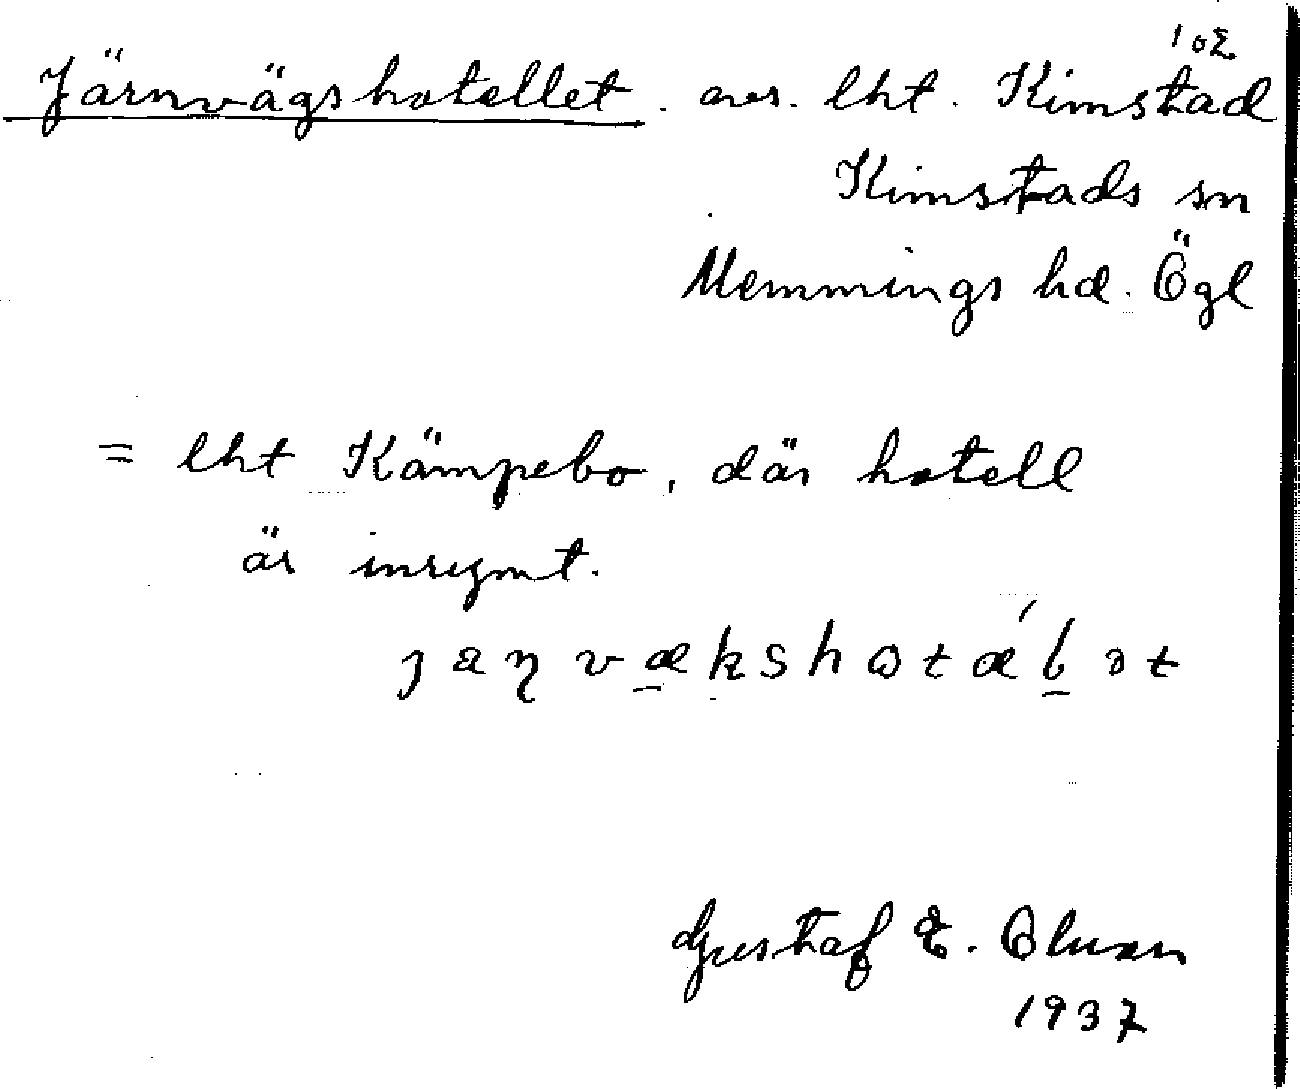 1 o 2
Järnvägshotellet. avs. lht. Kimstad
Kimstads sn
Memmings hd. Ögl
= lht Kämpebo, där hotell
är inrymt.
Gustaf E.
1937